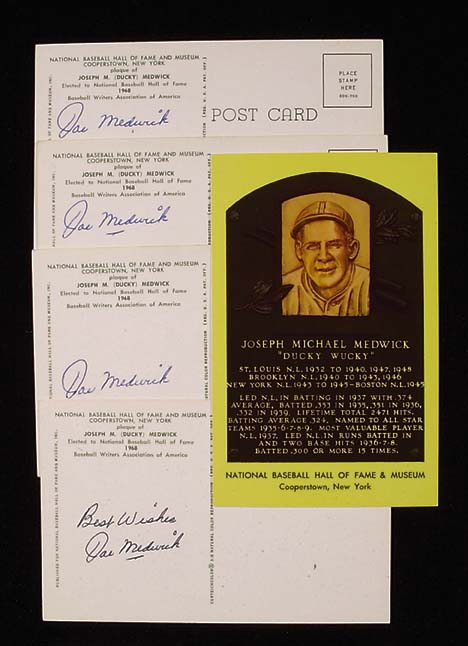 NATIONAL BASEBALL HALL OF FAME AND MUSEUM
COOPERSTOWN, NEW YORK
plaque of
JOSEPH M. (DUCKY) MEDWICK
Elected to National Baseball Hall of Fame
1968
Baseball Writers Association of America
Joe Medwick
POST CARD
PLACE
STAMP
HERE
NATIONAL BASEBALL HALL OF FAME AND MUSEUM
COOPERSTOWN, NEW YORK
plaque of
JOSEPH M. (DUCKY) MEDWICK
Elected to National Baseball Hall of Fame
1968
Baseball Writers Association of America
Joe Medwick
NATIONAL BASEBALL HALL OF FAME AND MUSEUM
COOPERSTOWN, NEW YORK
plaque of
JOSEPH M. (DUCKY) MEDWICK
Elected to National Baseball Hall of Fame
1968
Baseball Writers Association of America
Joe Medwick
NATIONAL BASEBALL HALL OF FAME AND MUSEUM
COOPERSTOWN, NEW YORK
plaque of
JOSEPH M. (DUCKY) MEDWICK
Elected to National Baseball Hall of Fame
1968
Baseball Writers Association of America
Best Wishes
Joe Medwick
JOSEPH MICHAEL MEDWICK
"DUCKY WUCKY"
ST. LOUIS N.L. 1932 TO 1940, 1947, 1948
BROOKLYN N.L. 1940 TO 1943, 1946
NEW YORK N.L. 1943 TO 1945-BOSTON N.L. 1945
LED N.L. IN BATTING IN 1937 WITH .374
AVERAGE, BATTED .353 IN 1935, .351 IN 1936,
.332 IN 1939. LIFETIME TOTAL 2471 HITS.
BATTING AVERAGE .324. NAMED TO ALL STAR
TEAMS 1935-6-7-8-9. MOST VALUABLE PLAYER
N.L. 1937. LED N.L. IN RUNS BATTED IN
AND TWO BASE HITS 1936-7-8.
BATTED .300 OR MORE 15 TIMES.
NATIONAL BASEBALL HALL OF FAME & MUSEUM
Cooperstown, New York